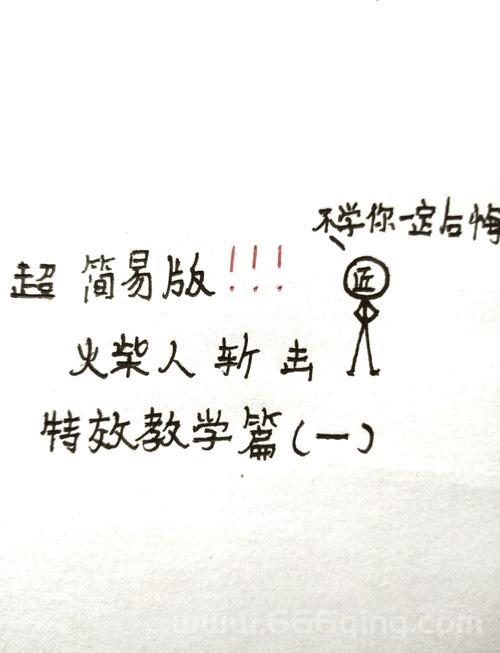 不学你一定后悔
超简易版!!!
匠
火柴人斩击
特效教学篇(一)
www.666qing.com